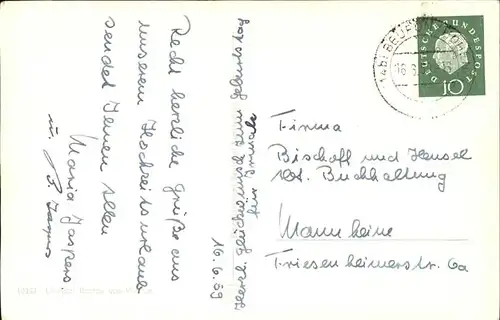 16.6.59
Recht herzliche Grüße aus
unserem Hochzeitsurlaub
sendet Ihnen allen
Maria Jaspers
u. P. Jaspers
Herzl. Glückwunsch zum Geburtstag
Firma
Bischoff und Hensel
Abt. Buchhaltung
Mannheim
Friesenheimerstr. 6a
DEUTSCHE BUNDESPOST
10